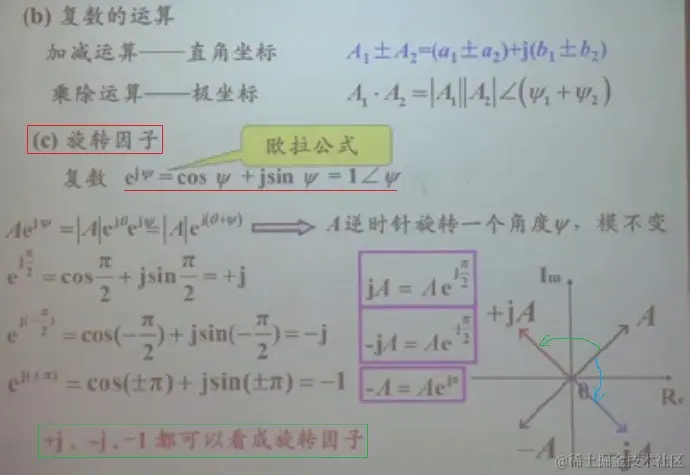 (b) 复数的运算
加减运算——直角坐标 A₁±A₂=(a₁±a₂)+j(b₁±b₂)
乘除运算——极坐标 A₁·A₂=|A₁||A₂|∠(ψ₁+ψ₂)
(c) 旋转因子
欧拉公式
复数 e^{jψ}=cos ψ +jsin ψ =1∠ψ
Ae^{jψ}=|A|e^{jθ}e^{jψ}=|A|e^{j(θ+ψ)} A逆时针旋转一个角度ψ，模不变
e^{j\frac{π}{2}}=cos\frac{π}{2}+jsin\frac{π}{2}=+j
e^{j(-\frac{π}{2})}=cos(-\frac{π}{2})+jsin(-\frac{π}{2})=-j
e^{j(±π)}=cos(±π)+jsin(±π)=-1
jA=Ae^{j\frac{π}{2}}
-jA=Ae^{\frac{π}{2}}
-A=Ae^{jπ}
Im
+jA
A
θ
-A
-jA
+j、-j、-1 都可以看成旋转因子
@稀土掘金技术社区